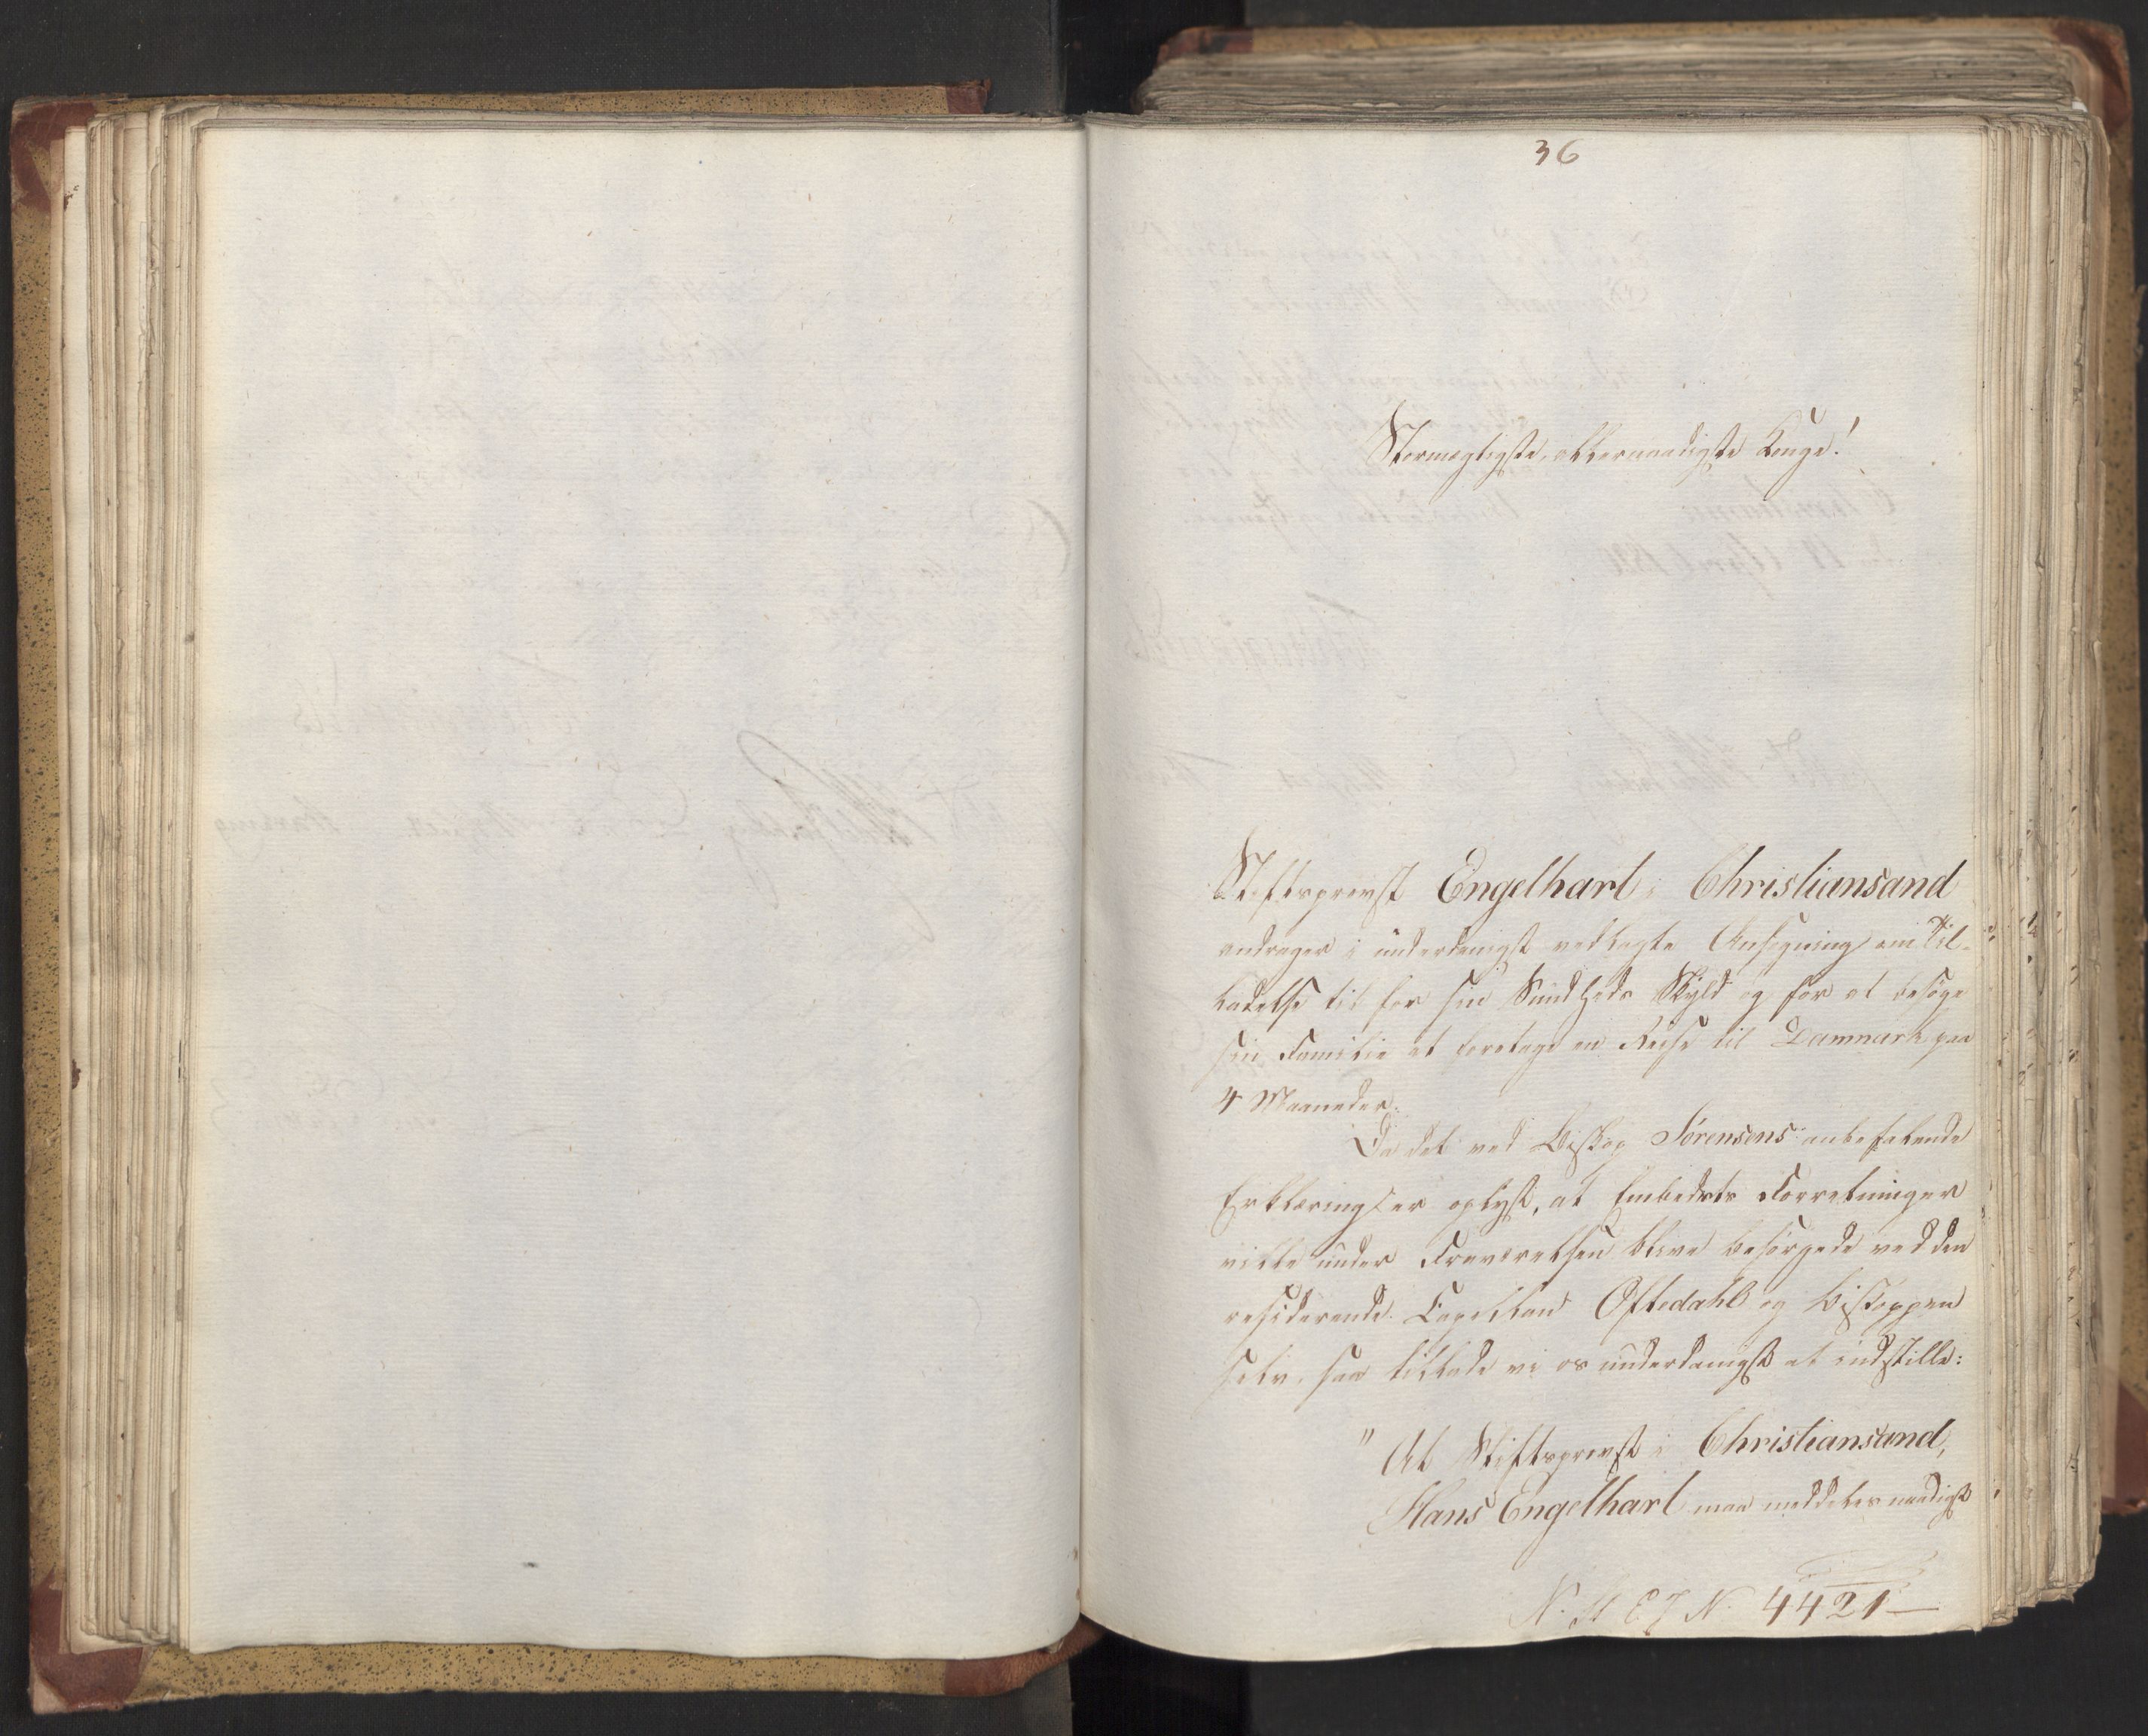 36
Stormægtigste, allernaadigste Konge!
Stiftsprovst Engelhart i Christiansand
andrager i underdanigst vedlagte Ansøgning om Til-
ladelse til for sin Sundheds Skyld og for at besøge
sin Familie at foretage en Reise til Danmark paa
4 Maaneder.
Da det ved Biskop Sørensens anbefalende
Erklæring er oplyst, at Embedets Forretninger
ville under Fraværelsen blive besørgede ved den
residerende Capellan Oftedahl og Biskoppen
selv, saa tillade vi os underdanigst at indstille:
"At Stiftsprovst i Christiansand,
Hans Engelhart maa meddeles naadigst
N. St E J N. 4421